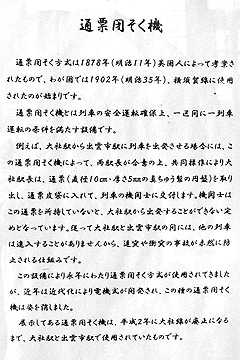 通票閉そく機
通票閉そく方式は1878年(明治11年)英国人によって考案さ
れたもので、わが国では1902年(明治35年)、横須賀線に使用
されたのが始まりです。
通票閉そく機とは列車の安全運転確保上、一区間に一列車
運転の条件を満たす設備です。
例えば、大社駅から出雲市駅に列車を出発させる場合には、こ
の通票閉そく機によって、両駅長が合意の上、共同操作により大
社駅長は、通票(直径10cm・厚さ5mmの真ちゅう製の円盤)を取り
出し、通票皮袋に入れて、列車の機関士に交付します。機関士は
この通票を所持していないと、大社駅から出発することができない定
めとなっています。従って大社駅と出雲市駅の間には、他の列車
は進入することがありませんから、追突や衝突の事故が未然に防
止される仕組みです。
この設備により永年にわたり通票閉そく方式が使用されてきました
が、近年は近代化により電機式が開発され、この種の通票閉そく
機は姿を消しました。
展示してある通票閉そく機は、平成2年に大社線が廃止になる
まで、大社駅と出雲市駅で使用されていたものです。